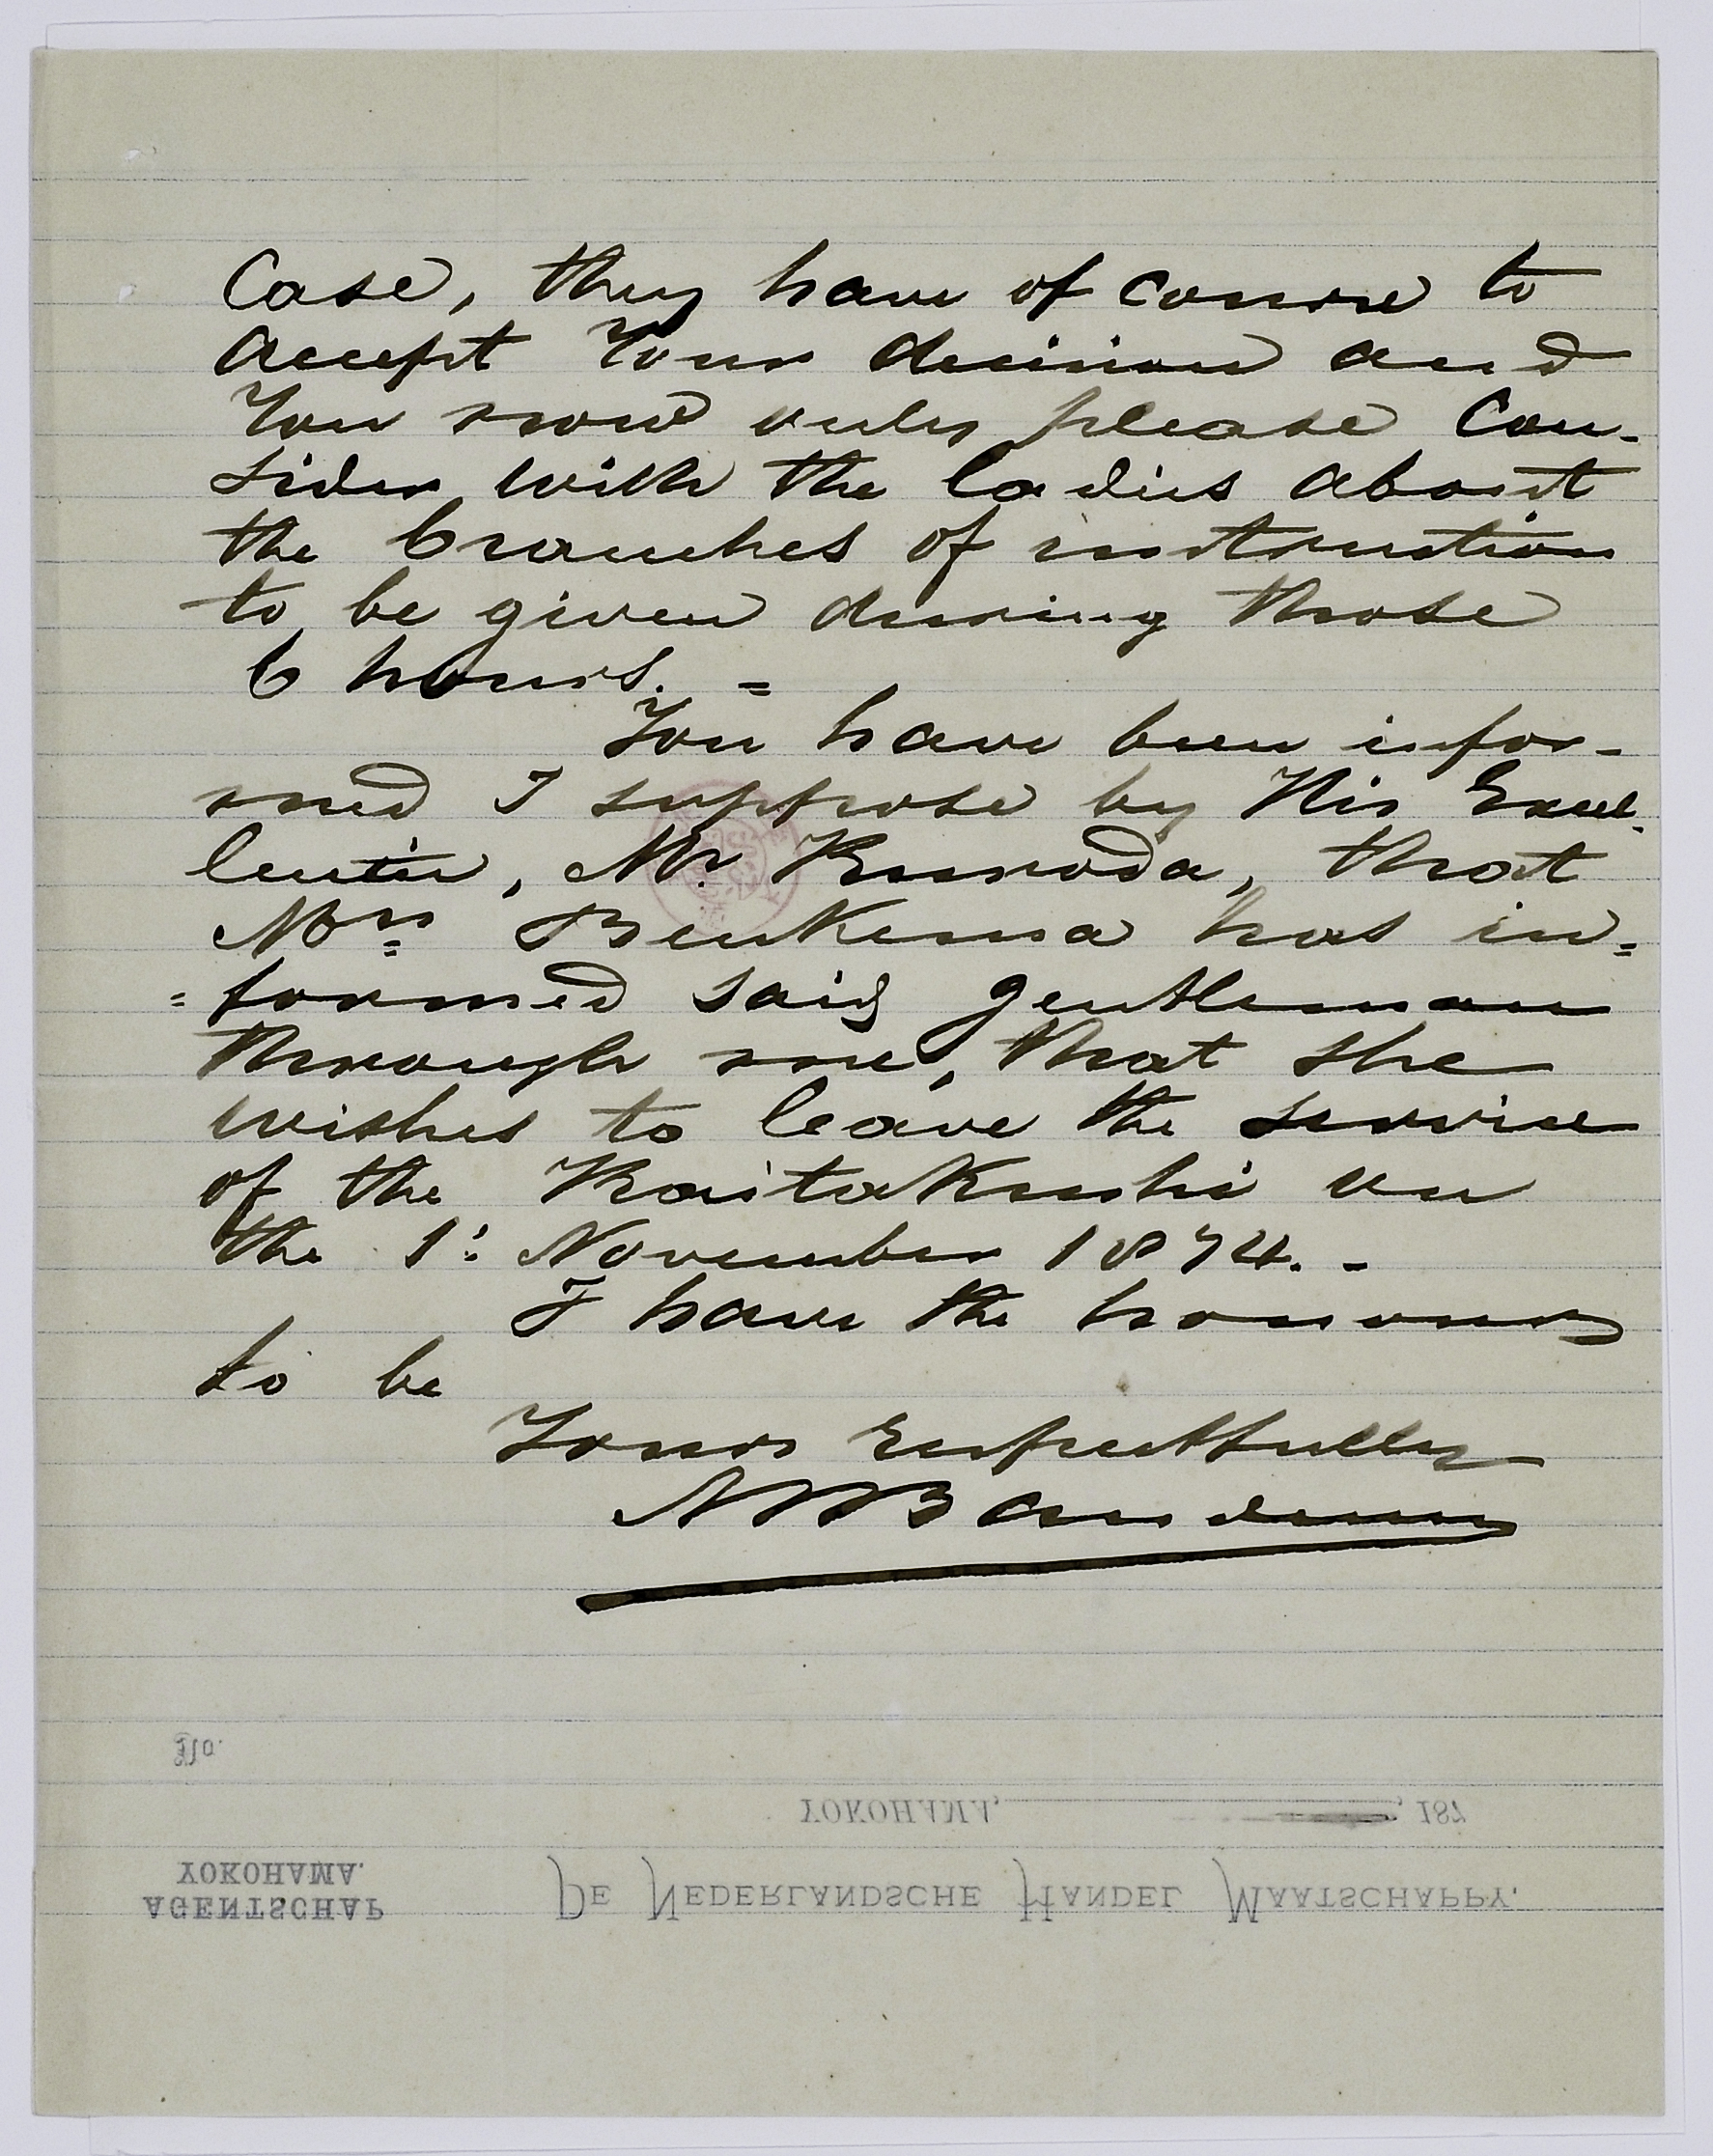 Case, they have of course to
accept Your decision and
You now only please con-
sider with the ladies about
the branches of instruction
to be given during those
6 hours. =
You have been infor-
med I suppose by His Excel-
lentie, Mr. Kuroda, that
Mrs Beukema has in=
=formed said gentleman
through me, that she
wishes to leave the service
of the Kaitakushi on
the 1: November 1874. -
I have the honour
to be
Yours Respectfully
No.
YOKOHAMA, , 187
YOKOHAMA.
AGENTSCHAP
DE NEDERLANDSCHE HANDEL MAATSCHAPPY.